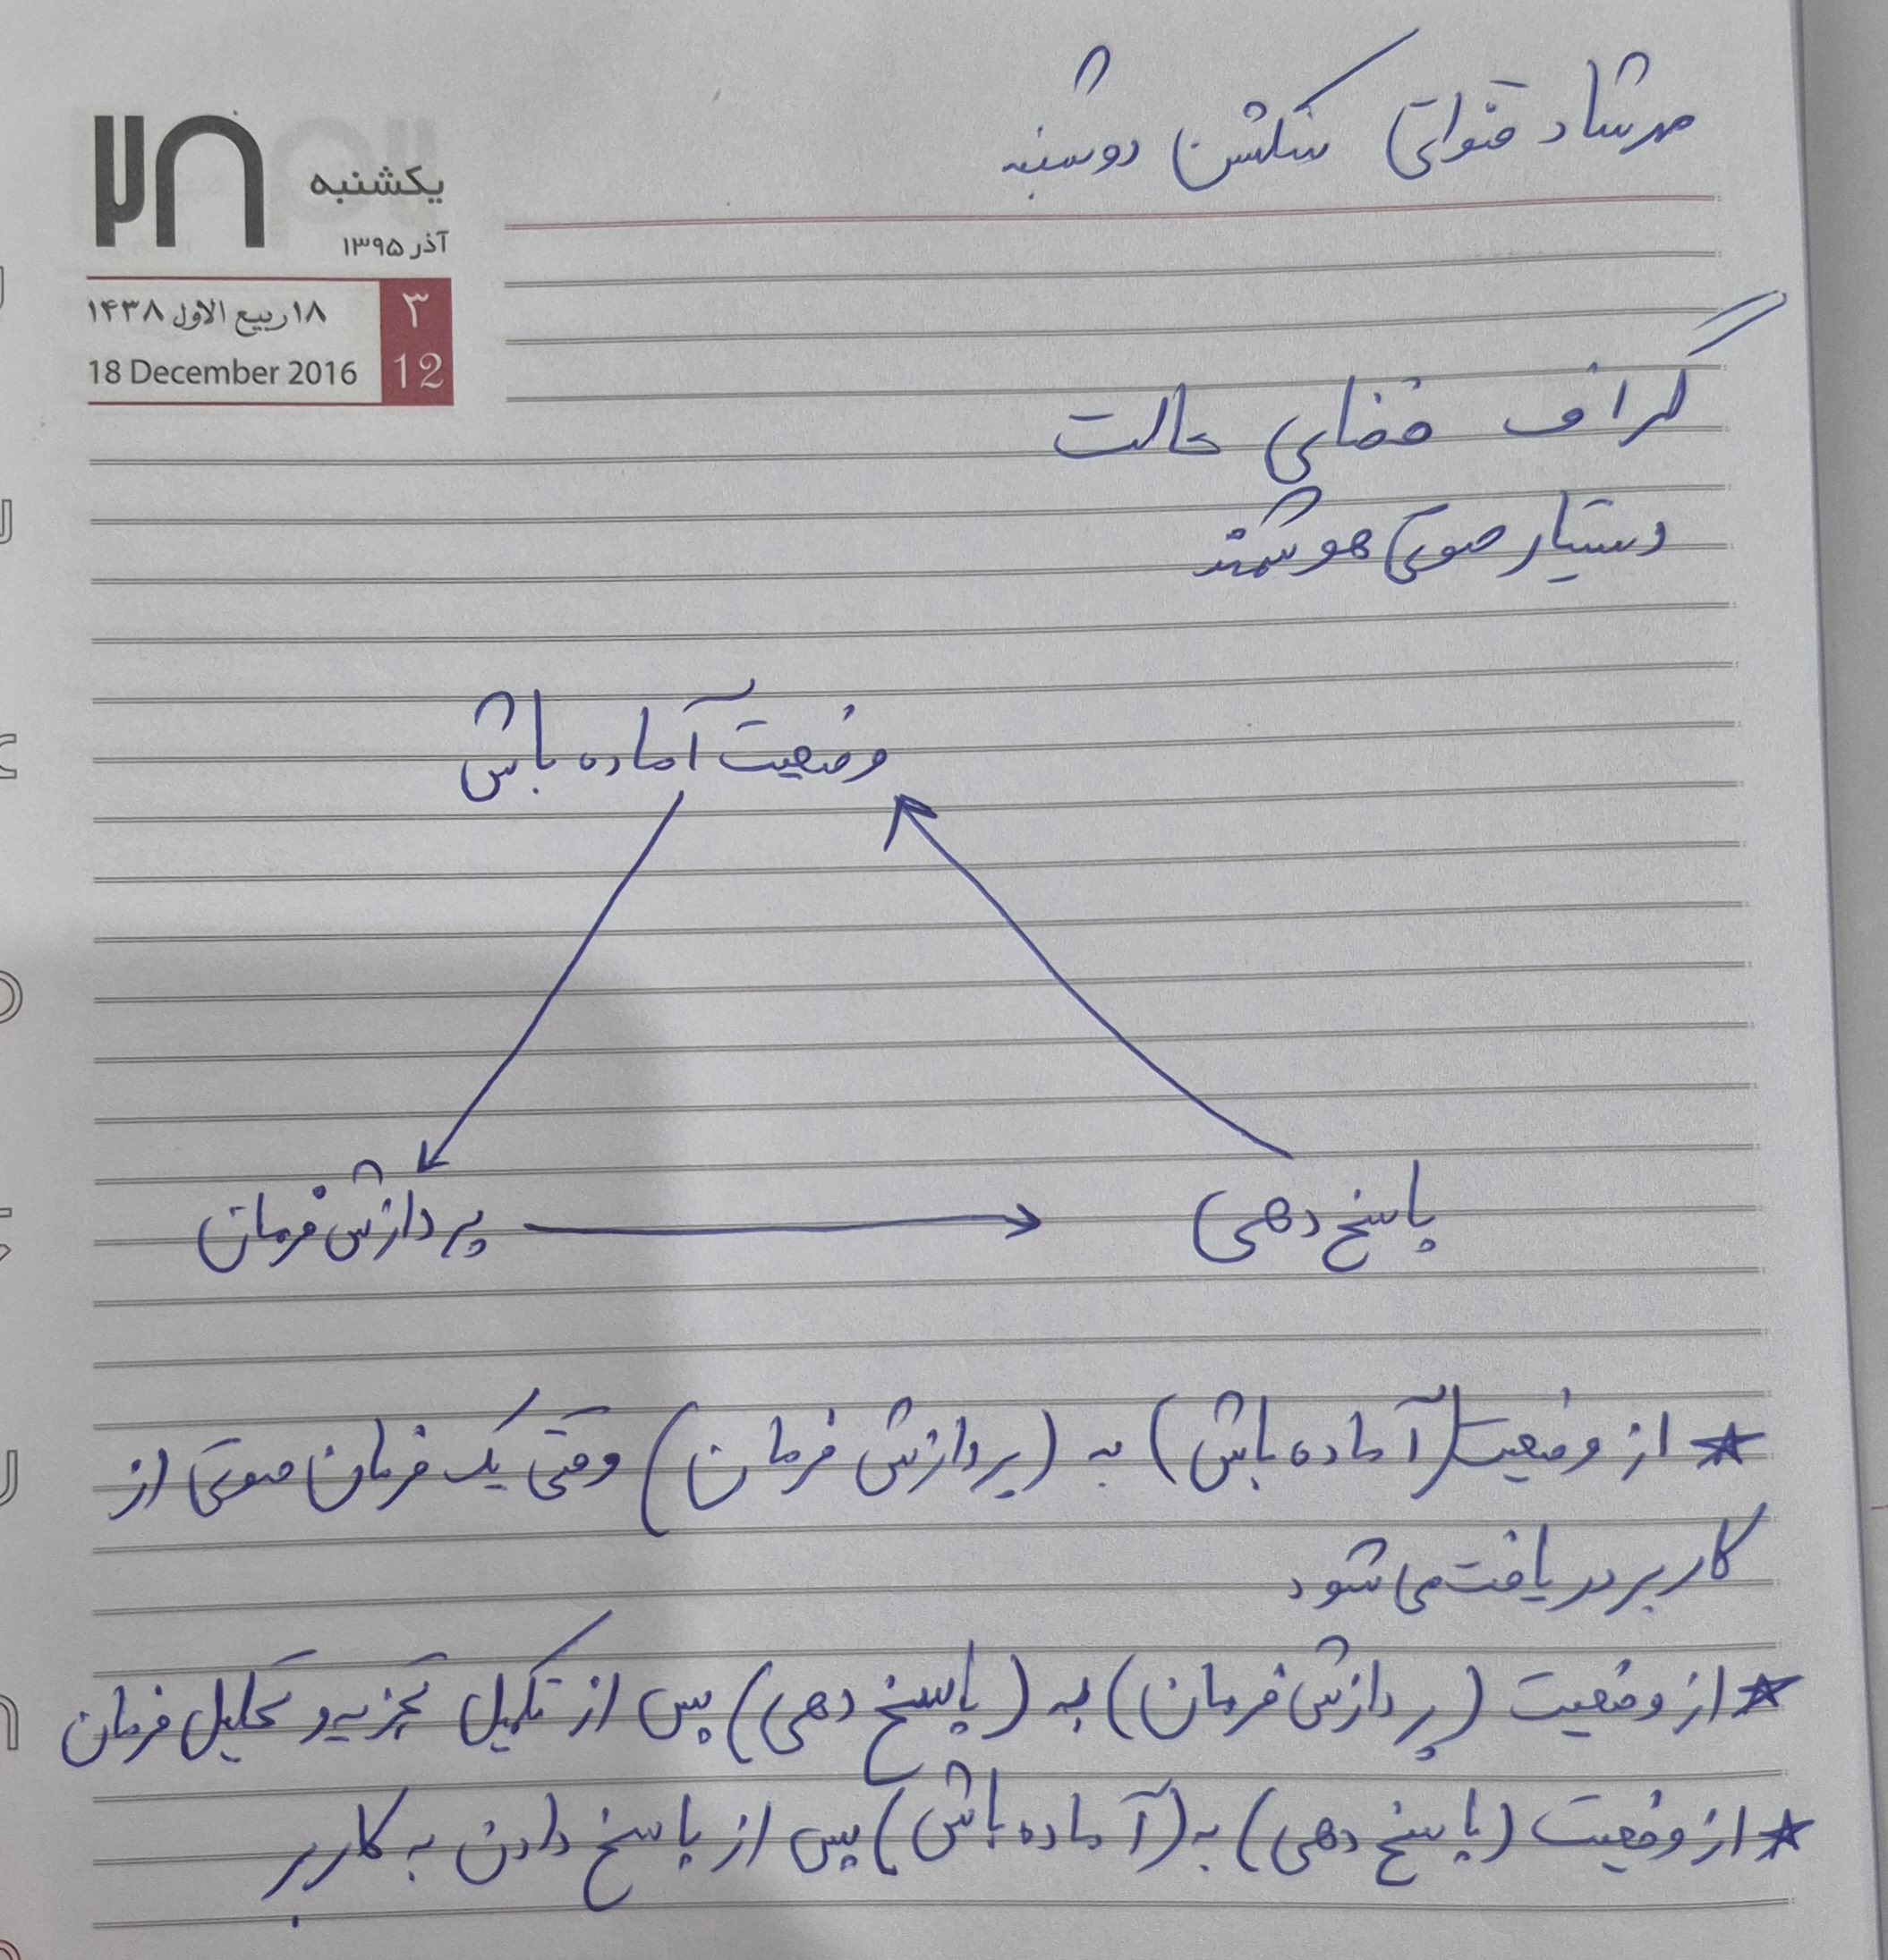 مهرشاد قنواتی سکشن دوشنبه
۲۸
یکشنبه
آذر ۱۳۹۵
۱۸ ربیع الاول ۱۴۳۸
۳
18 December 2016
12
گراف فضای حالت
دستیار صوتی هوشمند
وضعیت آماده باش
پردازش فرمان
پاسخ دهی
★ از وضعیت (آماده باش) به (پردازش فرمان) وقتی یک فرمان صوتی از
کاربر دریافت می شود
★ از وضعیت (پردازش فرمان) به (پاسخ دهی) پس از تکمیل تجزیه و تحلیل فرمان
★ از وضعیت (پاسخ دهی) به (آماده باش) پس از پاسخ دادن به کاربر